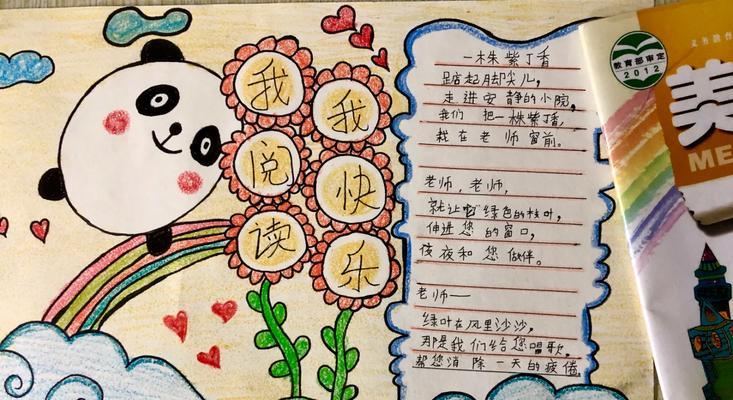 我阅读
我快乐
一株紫丁香
踮起脚尖儿，
走进安静的小院，
我们把一株紫丁香，
栽在老师窗前。
老师，老师，
就让它绿色的枝叶，
伸进您的窗口，
夜夜和您做伴。
老师——
绿叶在风里沙沙，
那是我们给您唱歌，
帮您消除一天的疲倦
教育部审定
2012
义务教
美
ME